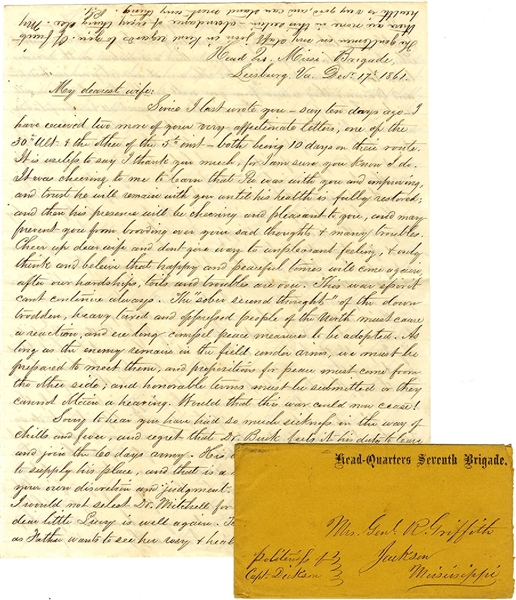 The gentlemen of my staff join in kind regards to you. Of
there are none in this section - abundance of every thing
health is very good and can stand most any thing
Head Qrs. Missi. Brigade,
Leesburg. Va. Decr. 17th. 1861.
My dearest wife;
Since I last wrote you – say ten days ago – I
have received two more of your very affectionate letters, one of the
30th Ult. & the other of the 5th inst – both being 10 days on their route.
It is useless to say I thank you much, for I am sure you know I do.
It was cheering to me to learn that was with you and improving,
and trust he will remain with you until his health is fully restored;
and then his presence will be cheering and pleasant to you, and may
prevent you from brooding over your sad thoughts & many troubles.
Cheer up dear wife and dont give way to unpleasant feeling, & only
think and believe that happy and peaceful times will come again,
after our hardships, toils and troubles are over. This war effort
cant continue always. The "sober second thought" of the down
trodden, heavy taxed and oppressed people of the North must cause
a reaction, and ere long compel peace measures to be adopted. As
long as the enemy remain in the field under arms, we must be
prepared to meet them, and propositions for peace must come from
the other side; and honorable terms must be submitted or they
cannot obtain a hearing. Would that this war could now cease!
Sorry to hear you have had so much sickness in the way of
chills and fever, and regret that Dr. Buck feels it his duty to leave
and join the 60 days army. His
to supply his place, and that is a
your own discretion and judgment.
I would not select Dr. Mitchell for
dear little Lucy is well again.
as Father wants to see her very &
Head-Quarters Seventh Brigade.
Mrs. Genl. R. Griffith
Jackson
Mississippi
politeness of
Capt. Dickson